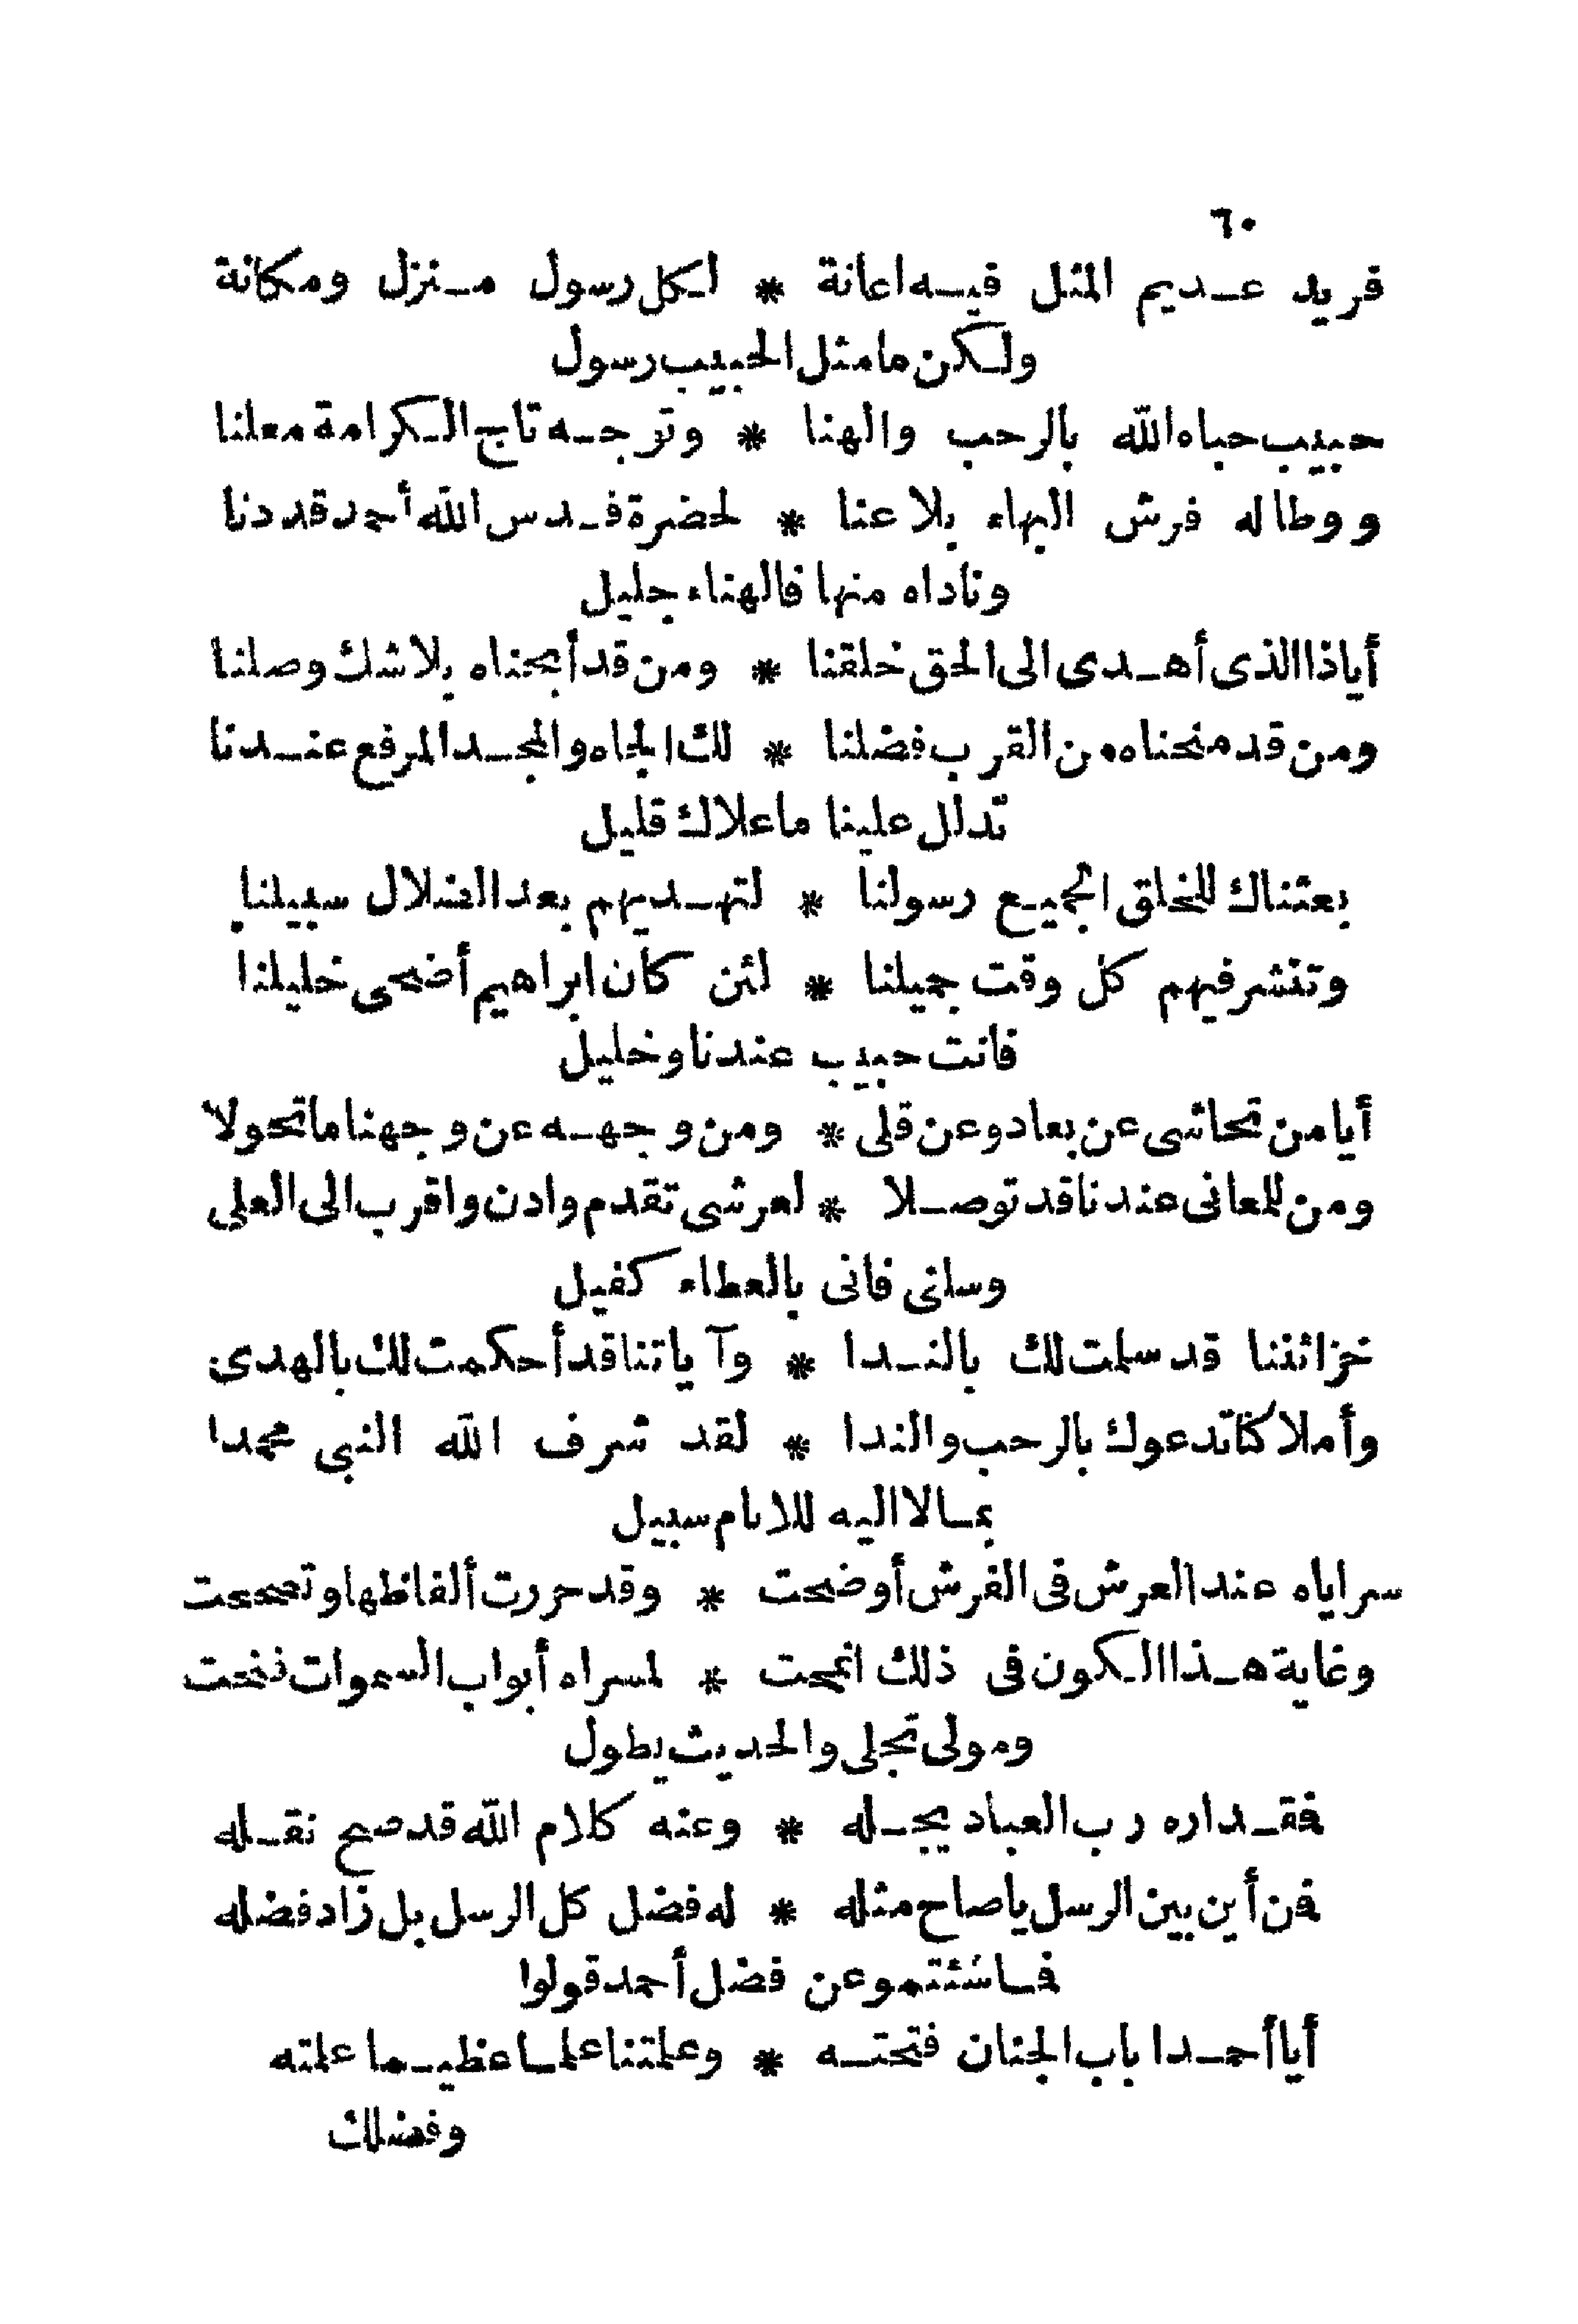 ٦٠
فريد عديم المثل فيه اعانة * لكل رسول منزل ومكانة
ولكن مامثل الحبيب رسول
حبيب حباه الله بالرحب والهنا * وتوجه تاج الكرامة معلنا
ووطاله فرش البهاء بلاعنا * لحضرة قدس الله أحمد قددنا
وناداه منها فالهناء جليل
أياذا الذى أهدى الى الحق خلقنا * ومن قد أبحناه بلاشك وصلنا
ومن قد منحناه من القرب فضلنا * لك الجاه والمجد المرفع عندنا
تدلل علينا ماعلاك قليل
بعثناك للخلق الجميع رسولنا * لتهديهم بعد الضلال سبيلنا
وتنشر فيهم كل وقت جميلنا * لئن كان ابراهيم أضحى خليلنا
فانت حبيب عندنا وخليل
أيامن تحاشى عن بعاد وعن قلى * ومن وجهه عن وجهنا ماتحولا
ومن للمعانى عندنا قد توصلا * لعرشى تقدم وادن واقرب الى العلى
وسلنى فانى بالعطاء كفيل
خزائننا قد سلمت لك بالندا * وآياتنا قد أحكمت لك بالهدى
وأملاكنا تدعوك بالرحب والندا * لقد شرف الله النبى محمدا
بمالا اليه للانام سبيل
سراياه عند العرش فى الفرش أوضحت * وقد حررت ألفاظها وتصححت
وغاية هذا الكون فى ذلك انمحت * لمسراه أبواب السموات فتحت
ومولى تجلى والحديث يطول
فقداره رب العباد يجله * وعنه كلام الله قد صح نقله
فمن أين بين الرسل ياصاح مثله * له فضل كل الرسل بل زاد فضله
فماشئتمو عن فضل أحمد قولوا
أيا أحمدا باب الجنان فتحته * وعلمتنا علما عظيما علمته
وفضلك